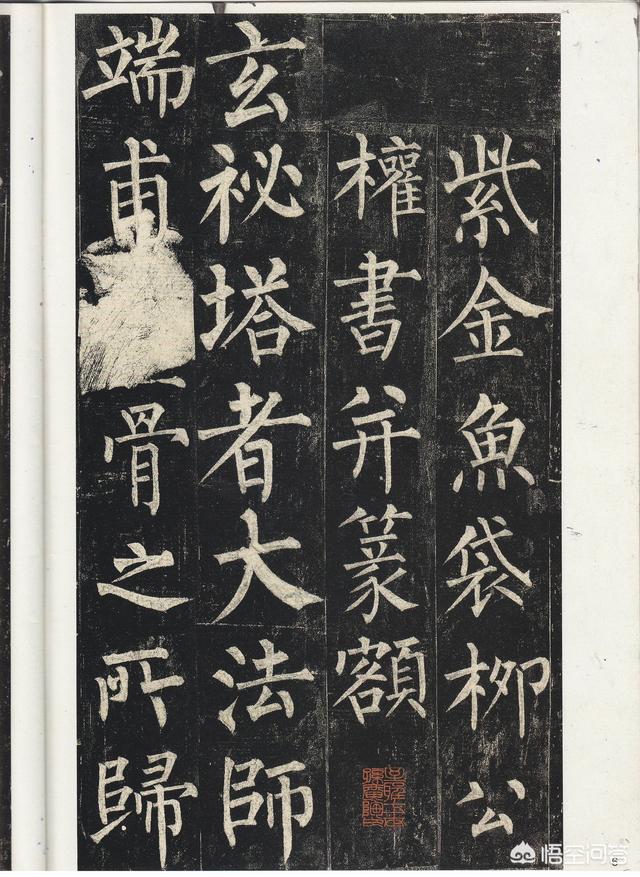 紫金魚袋柳公
權書并篆額
玄祕塔者大法師
端甫骨之所歸
悟空问答